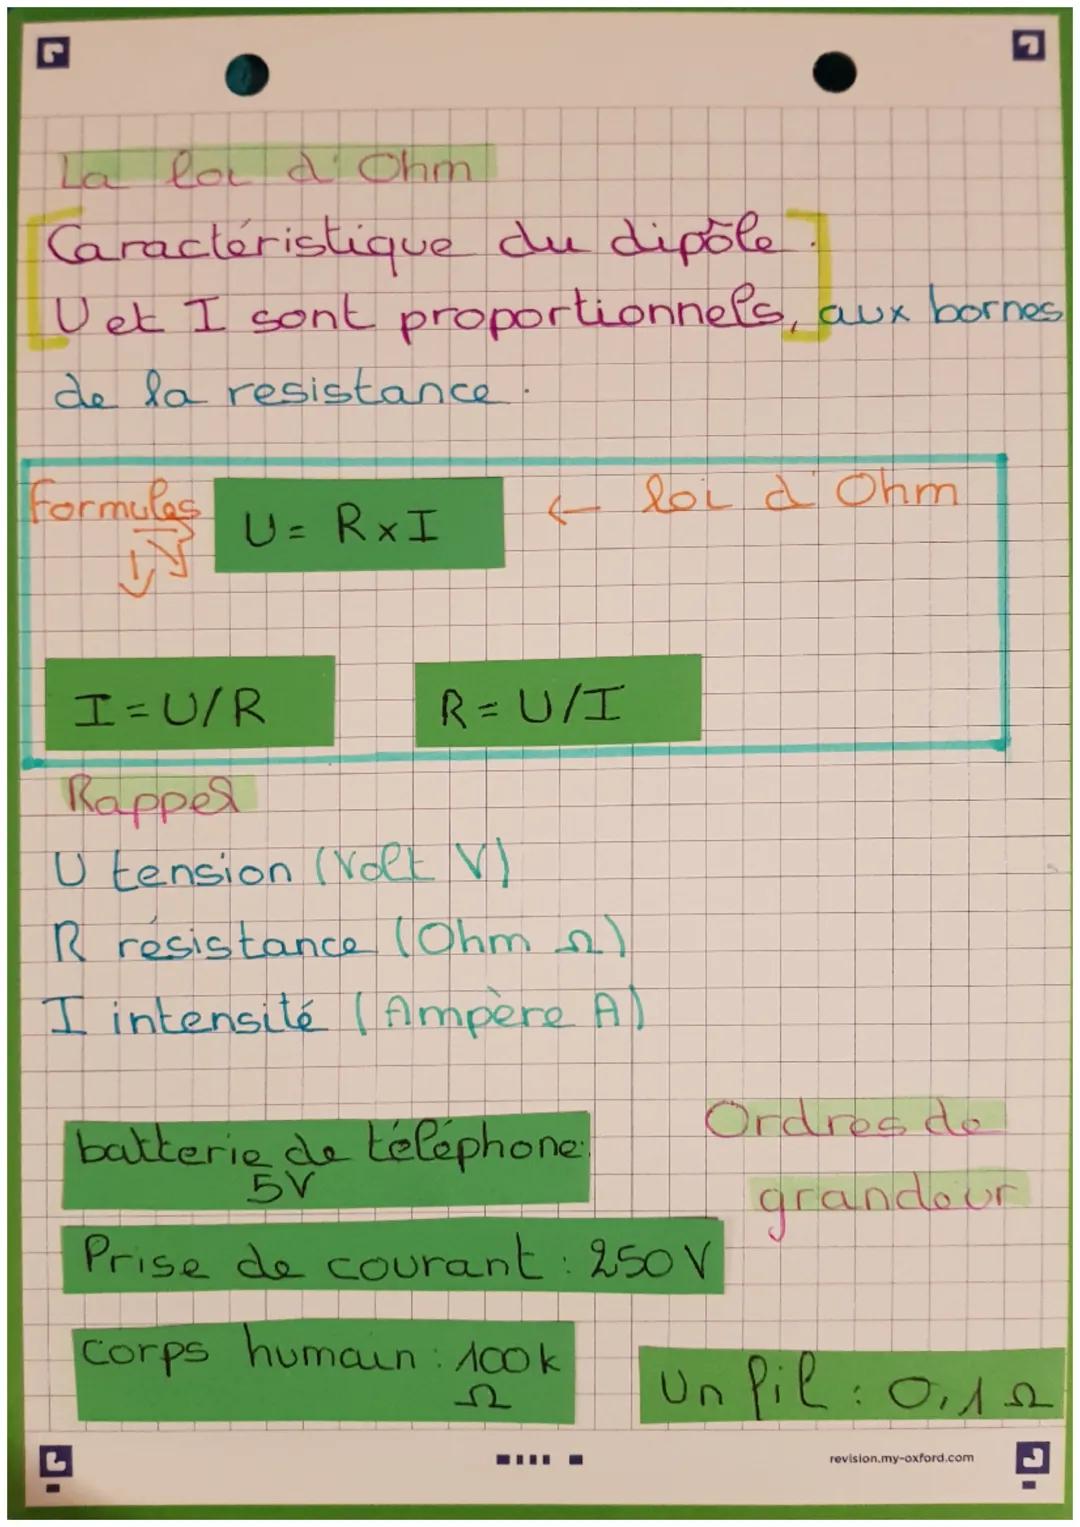 La loi d'Ohm
Caractéristique du dipôle.
U et I sont proportionnels, aux bornes
de la resistance.
Formules
U = R x I
← loi d'Ohm
I = U/R
R = U/I
Rappel
U tension (Volt V)
R résistance (Ohm Ω)
I intensité (Ampère A)
Ordres de
grandeur
batterie de téléphone:
5V
Prise de courant : 250 V
corps humain : 100k
Ω
Un fil : 0,1 Ω
revision.my-oxford.com